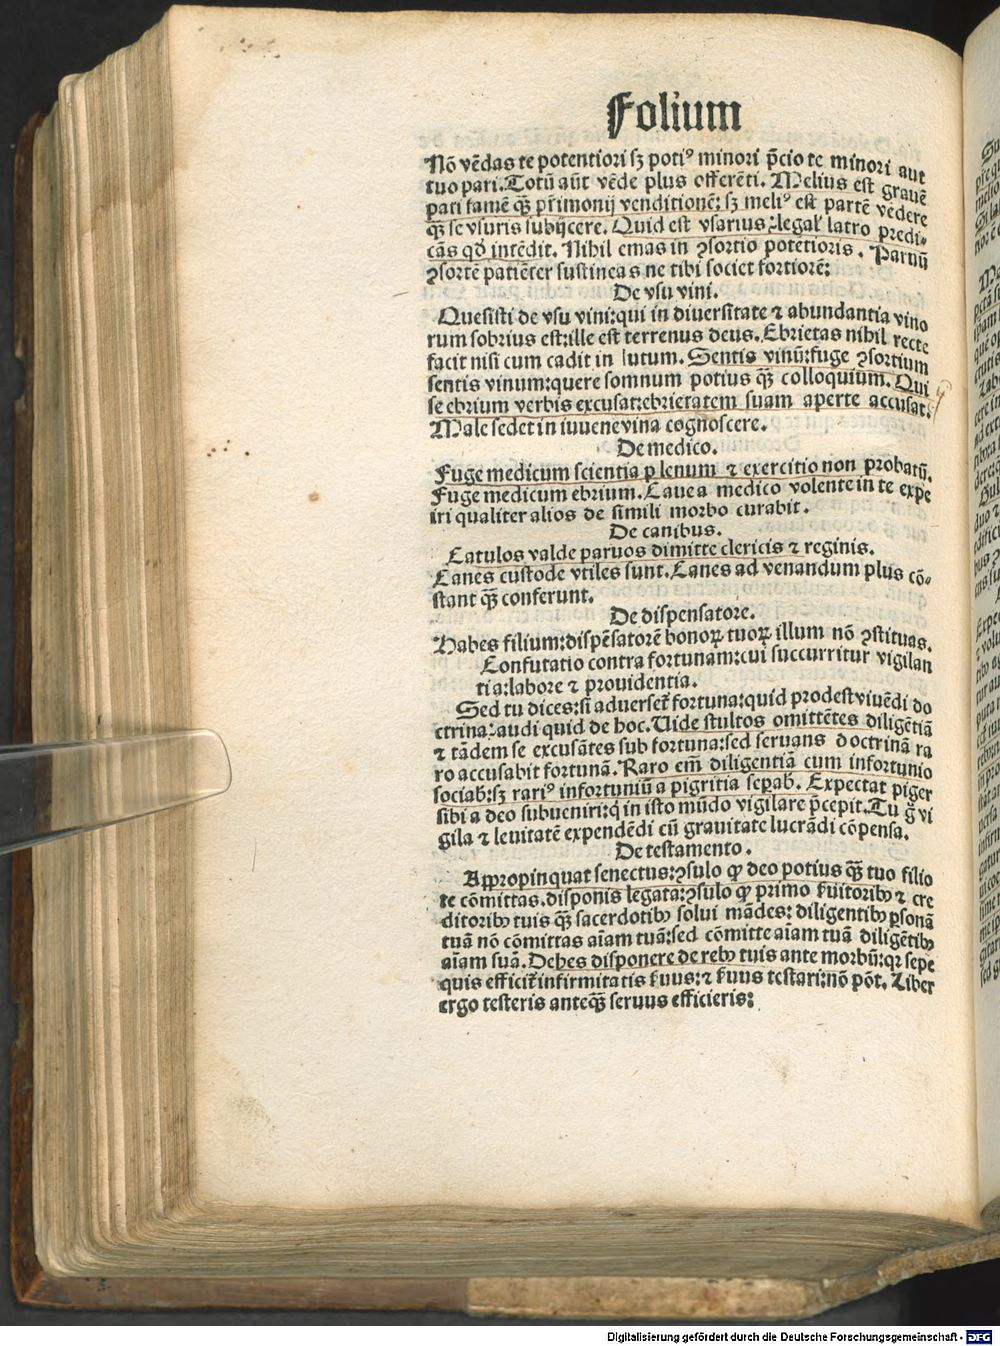 Folium
Nō vēdas te potentiori sꝫ potiꝰ minori p̄cio te minori aut
tuo pari. Totū aūt vēde plus offerēti. Melius est grauē
pati famē qꝫ̄ p̄rimonij venditionē: sꝫ meliꝰ est partē vēdere
qꝫ̄ se vsuris subijcere. Quid est vsarius: legal' latro predi-
cās qd̓ intēdit. Nihil emas in ꝯsortio potētioris. Paruū
ꝯsortē patiēter sustineas ne tibi societ fortiorē:
De vsu vini.
Quesisti de vsu vini: qui in diuersitate ⁊ abundantia vino
rum sobrius est: ille est terrenus deus. Ebrietas nihil recte
facit nisi cum cadit in lutum. Sentis vinū: fuge ꝯsortium
sentis vinum: quere somnum potius qꝫ̄ colloquium. Qui
se ebrium verbis excusat: ebrietatem suam aperte accusat.
Male sedet in iuuene vina cognoscere.
De medico.
Fuge medicum scientia plenum ⁊ exercitio non probatū.
Fuge medicum ebrium. Caue a medico volente in te expe
iri qualiter alios de simili morbo curabit.
De canibus.
Catulos valde paruos dimitte clericis ⁊ reginis.
Canes custode vtiles sunt. Canes ad venandum plus cō-
stant qꝫ̄ conferunt.
De dispensatore.
Habes filium: dispēsatorē bonoꝝ tuoꝝ illum nō ꝯstituas.
Confutatio contra fortunam: cui succurritur vigilan
tia: labore ⁊ prouidentia.
Sed tu dices: si aduerset᷑ fortuna: quid prodest viuēdi do
ctrina: audi quid de hoc. Uide stultos omittētes diligētiā
⁊ tādem se excusātes sub fortuna: sed seruans doctrinā ra
ro accusabit fortunā. Raro em̄ diligentiā cum infortunio
sociab: sꝫ rariꝰ infortuniū a pigritia sepab. Expectat piger
sibi a deo subueniri: q̄ in isto mūdo vigilare p̄cepit. Tu g̊ vi
gila ⁊ leuitatē expendēdi cū grauitate lucrādi cōpensa.
De testamento.
Appropinquat senectus: ꝯsulo ꝙ deo potius qꝫ̄ tuo filio
te cōmittas. disponis legata: ꝯsulo ꝙ primo ẜuitoribꝰ ⁊ cre
ditoribꝰ tuis qꝫ̄ sacerdotibꝰ solui mādes: diligentibꝰ ꝑsonā
tuā nō cōmittas aīam tuā: sed cōmitte aīam tuā diligētibꝰ
aīam suā. Debes disponere de rebꝰ tuis ante morbū: qꝛ sepe
quis efficit᷑ infirmitatis ẜuus: ⁊ ẜuus testari: nō pōt. Liber
ergo testeris anteqꝫ̄ seruus efficieris:
Digitalisierung gefördert durch die Deutsche Forschungsgemeinschaft - DFG